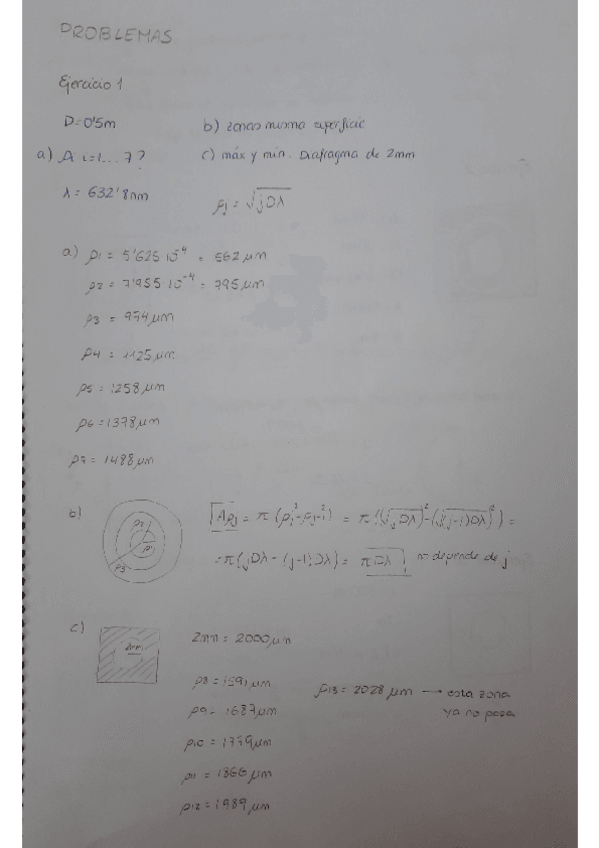 PROBLEMAS
Ejercicio 1
D=0'5m
b) zonas misma superficie
a) A i=1...7?
c) máx y min. Diafragma de 2mm
λ = 632'8nm
ρj = √jDλ
a) ρ1 = 5'625·10⁻⁴ = 562 μm
ρ2 = 7'955·10⁻⁴ = 795 μm
ρ3 = 974 μm
ρ4 = 1125 μm
ρ5 = 1258 μm
ρ6 = 1378 μm
ρ7 = 1488 μm
b)
ρ2
ρ1
ρ3
Aρj = π (ρj² - ρj-1²) = π ((√jDλ)² - (√(j-1)Dλ)²) =
= π (jDλ - (j-1)Dλ) = πDλ, no depende de j
c)
2mm
2mm = 2000 μm
ρ8 = 1591 μm
ρ13 = 2028 μm → esta zona
ya no pasa
ρ9 = 1687 μm
ρ10 = 1779 μm
ρ11 = 1866 μm
ρ12 = 1989 μm